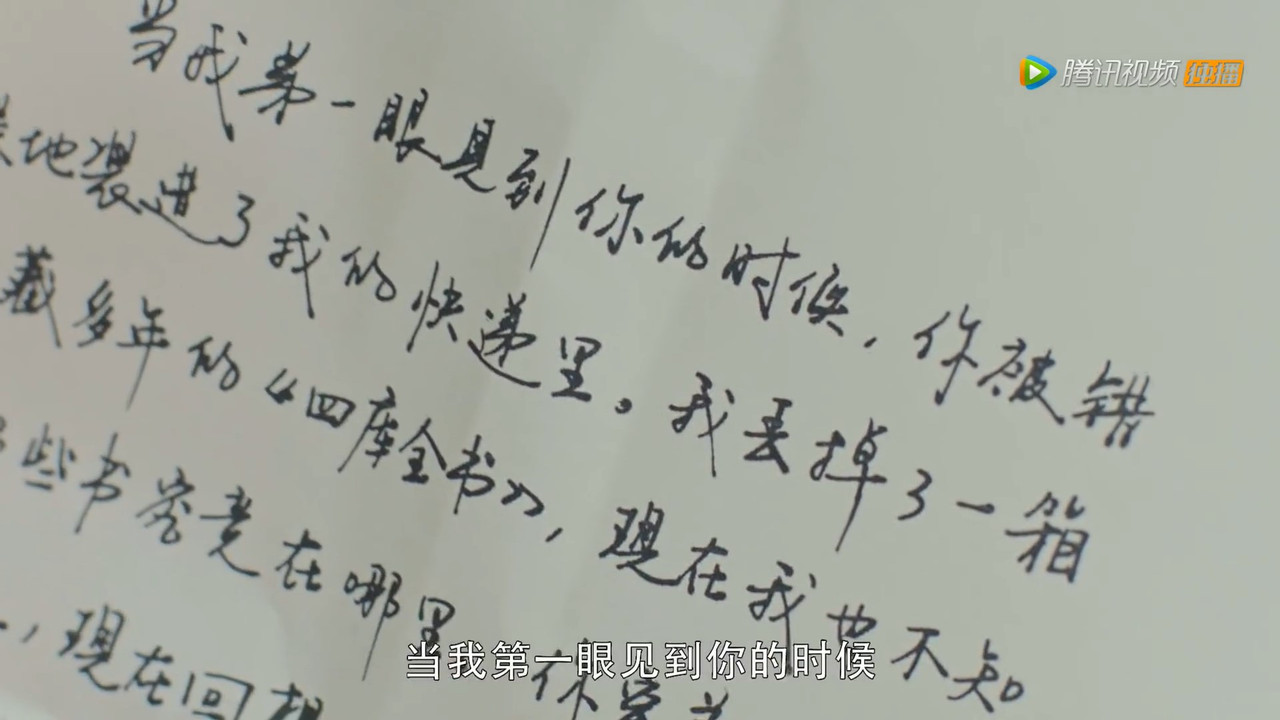 腾讯视频 独播
当我第一眼见到你的时候，你被错
地装进了我的快递里。我丢掉了一箱
藏多年的《四库全书》，现在我也不知
些书究竟在哪里
，现在回想
当我第一眼见到你的时候